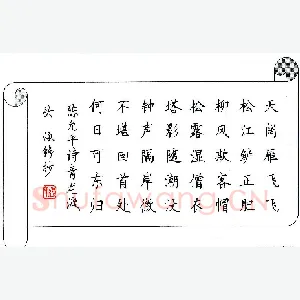 天阔雁飞飞
松江鲈正肥
柳风欺客帽
松露湿僧衣
塔影随潮没
钟声隔岸微
不堪回首处
何日可东归
陈允平诗青龙渡
头
Shufawang.CN